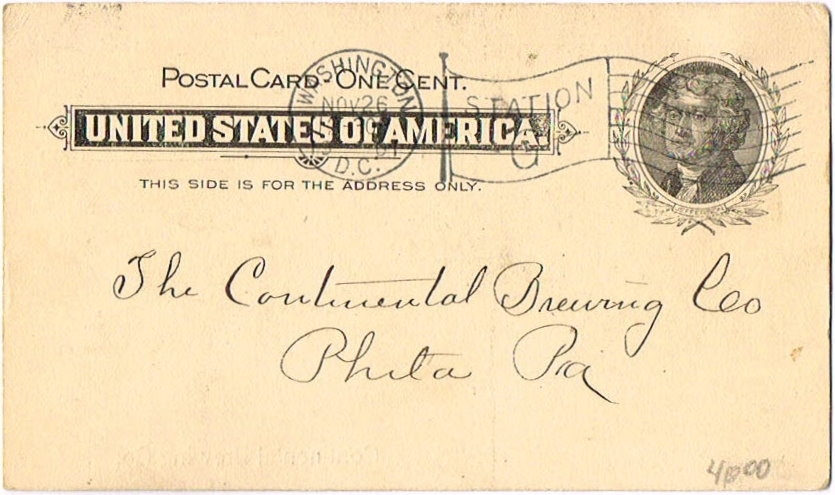 POSTAL CARD - ONE CENT.
UNITED STATES OF AMERICA.
THIS SIDE IS FOR THE ADDRESS ONLY.
WASHINGTON
NOV 26
D.C.
STATION
JEFFERSON
The Continental Brewing Co
Phila Pa
4000